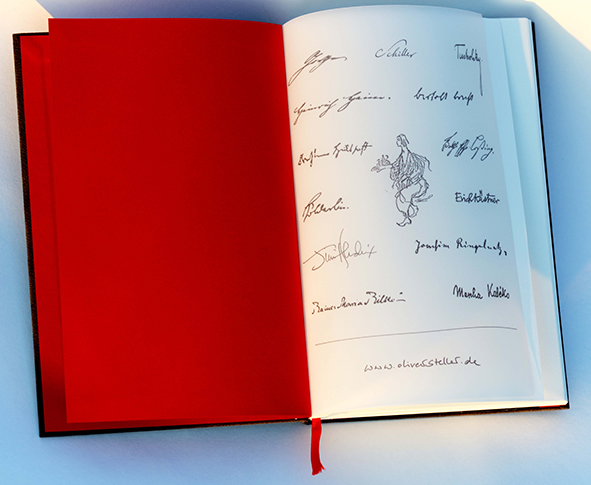 Goethe Schiller Tucholsky
Heinrich Heine. bertolt brecht
Hölderlin. Erich Kästner
Jimi Hendrix Joachim Ringelnatz,
Rainer Maria Rilke Mascha Kaléko
www.oliversteller.de